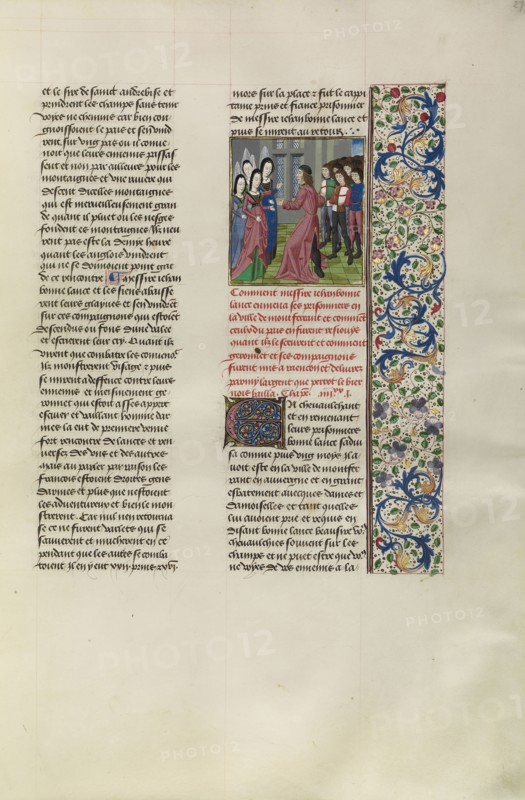 et le sire de saint andrebise et
prindrent les champs sans tenir
voyes ne chemins car bien con
gnoissoient le pais et sen vind
rent sur ung pas ou il conue
noit que leurs ennemis passas
sent et non par ailleurs pour les
montaignes et une riuiere qui
descent dicelles montaignes
qui est merueilleusement gran
de quant il pluet ou les neges
fondent es montaignes Ilz neu
rent pas este la demye heure
quant les anglois vindrent
qui ne se donnoient point gar
de ce rencontre Messire iehan
bonne lance et les siens abaisse
rent leurs glayues et sen vindrent
sur ces compaignons qui estoient
descendus ou fons dune valee
et escrierent leur cry Quant ilz
virent que combatre les conuenoit
ilz monstrerent visage et puis
se mirent a deffence contre leurs
ennemis et mesmement ge
ronnet qui estoit asses appert
escuier et vaillant homme dar
mes la eut de premiere venue
fort rencontre de lances et ren
uerses des uns et des autres
mais au parler par raison les
francois estoient droittes gens
darmes et plus que nestoient
les aduentureux et bien le mon
strerent Car nul nen retourna
se ce ne furent varlets qui se
sauuerent et mucherent en ce
pendant que les autres se comba
toient il en y eut xxii prins et xvi
mors sur la place et fut le cappi
taine prins et fiance prisonnier
de messire iehan bonne lance et
puis se mirent au retour
Comment messire iehan bonne
lance enmena ses prisonniers en
la ville de montferrant et comment
ceulx du pais en furent resiouys
quant ilz le sceurent et comment
geronnet et ses compaignons
furent mis a rancon et deliurez
parmy largent que perrot le bier
nois bailla. Chapitre
En cheuauchant
et en ramenant
leurs prisonniers
bonne lance sadui
sa comme puis ung moys il a
voit este en la ville de montfer
rant en auuergne et en grant
esbatement auecques dames et
damoiselles et tant quelles
lui auoient prie et requis en
disant bonne lance beau sire vous
cheuauchies souuent sur les
champs et ne puet estre que vous
ne voyes de vos ennemis a la